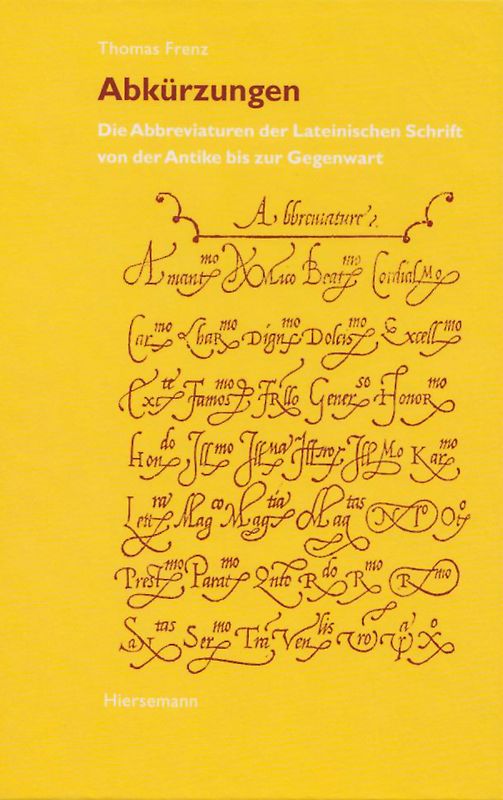 Thomas Frenz
Abkürzungen
Die Abbreviaturen der Lateinischen Schrift
von der Antike bis zur Gegenwart
Abbreuiature
Amant^mo Amico Beat^mo Cordial^mo
Car^mo Char^mo Dign^mo Dolcis^mo Excell^mo
Exc^te Famos^mo Frllo Gener^so Honor^mo
Hon^do Ill^mo Ill^ma Ill^mo Kar^mo
Lett^ra Mag^co Mag^tia Mag^tas
Prest^mo Parat^mo Qnto R^do R^mo R^mo
San^tas Ser^mo Tra Ven^lis
Hiersemann